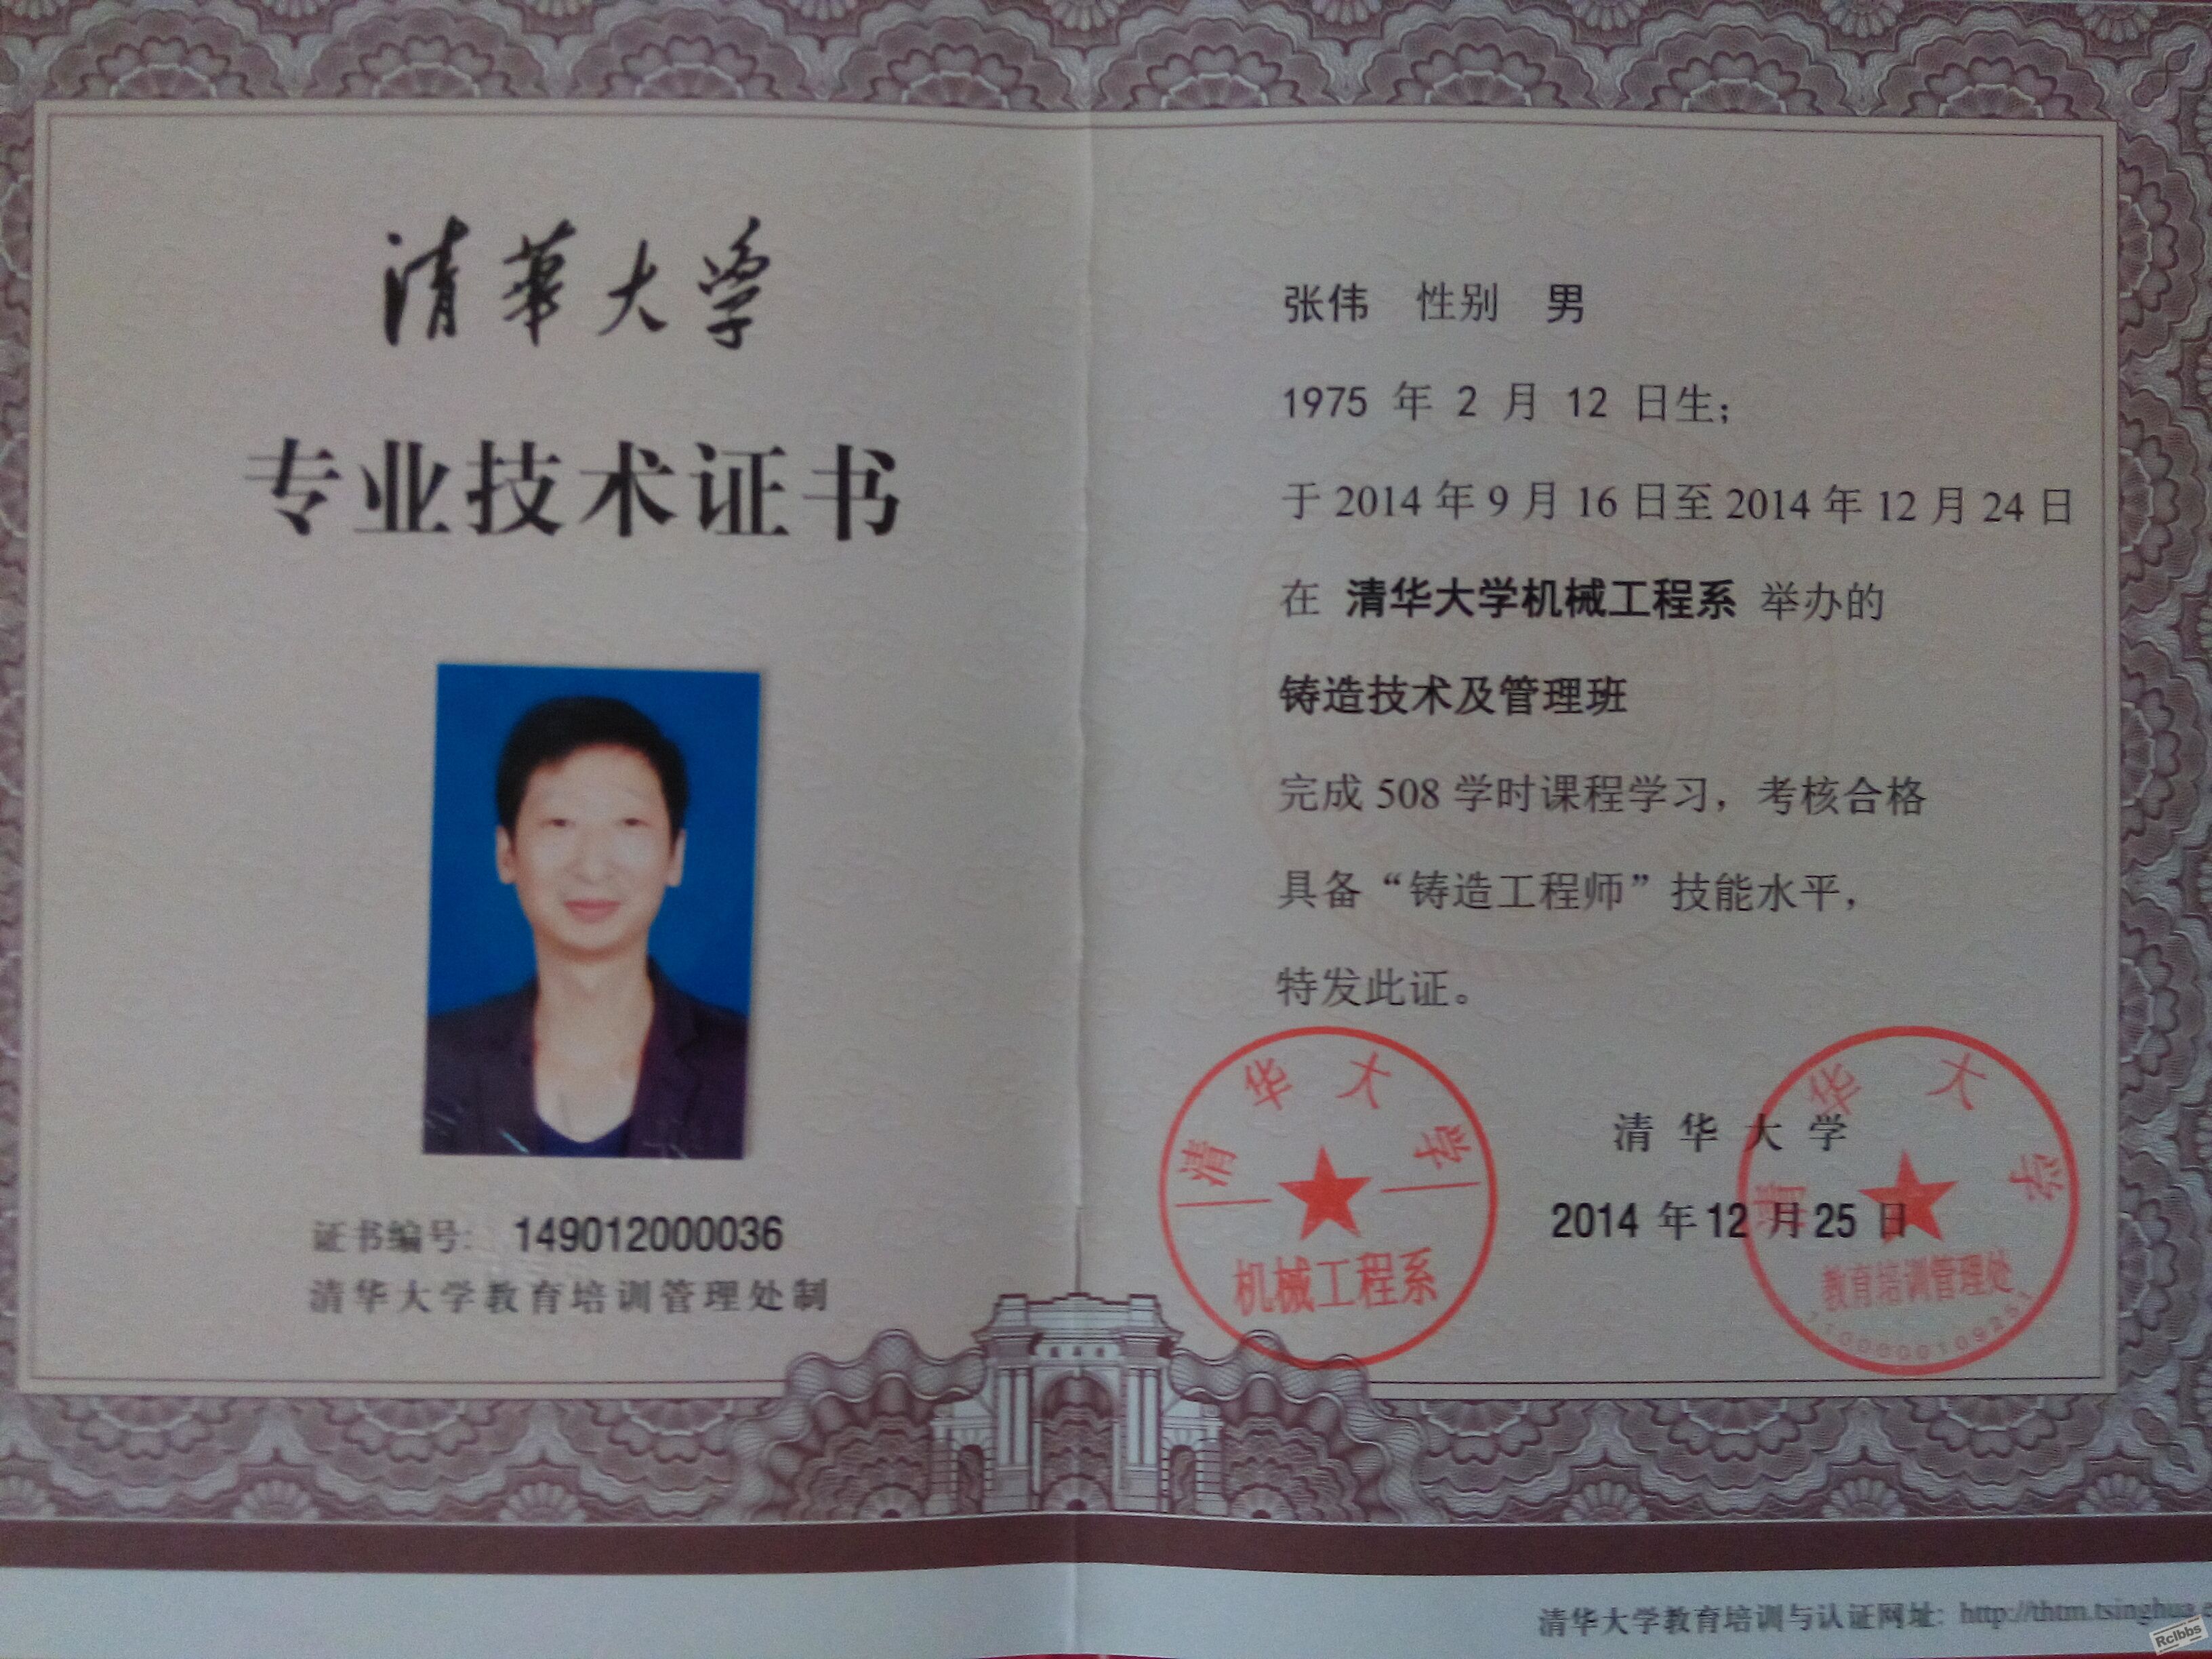 清华大学
专业技术证书
证书编号: 149012000036
清华大学教育培训管理处制
张伟 性别 男
1975 年 2 月 12 日生;
于 2014 年 9 月 16 日至 2014 年 12 月 24 日
在 清华大学机械工程系 举办的
铸造技术及管理班
完成 508 学时课程学习，考核合格
具备“铸造工程师”技能水平，
特发此证。
清华大学
机械工程系
清 华 大 学
2014 年 12 月 25 日
清华大学
教育培训管理处
清华大学教育培训与认证网址: http://thtm.tsinghua.
Rclbbs